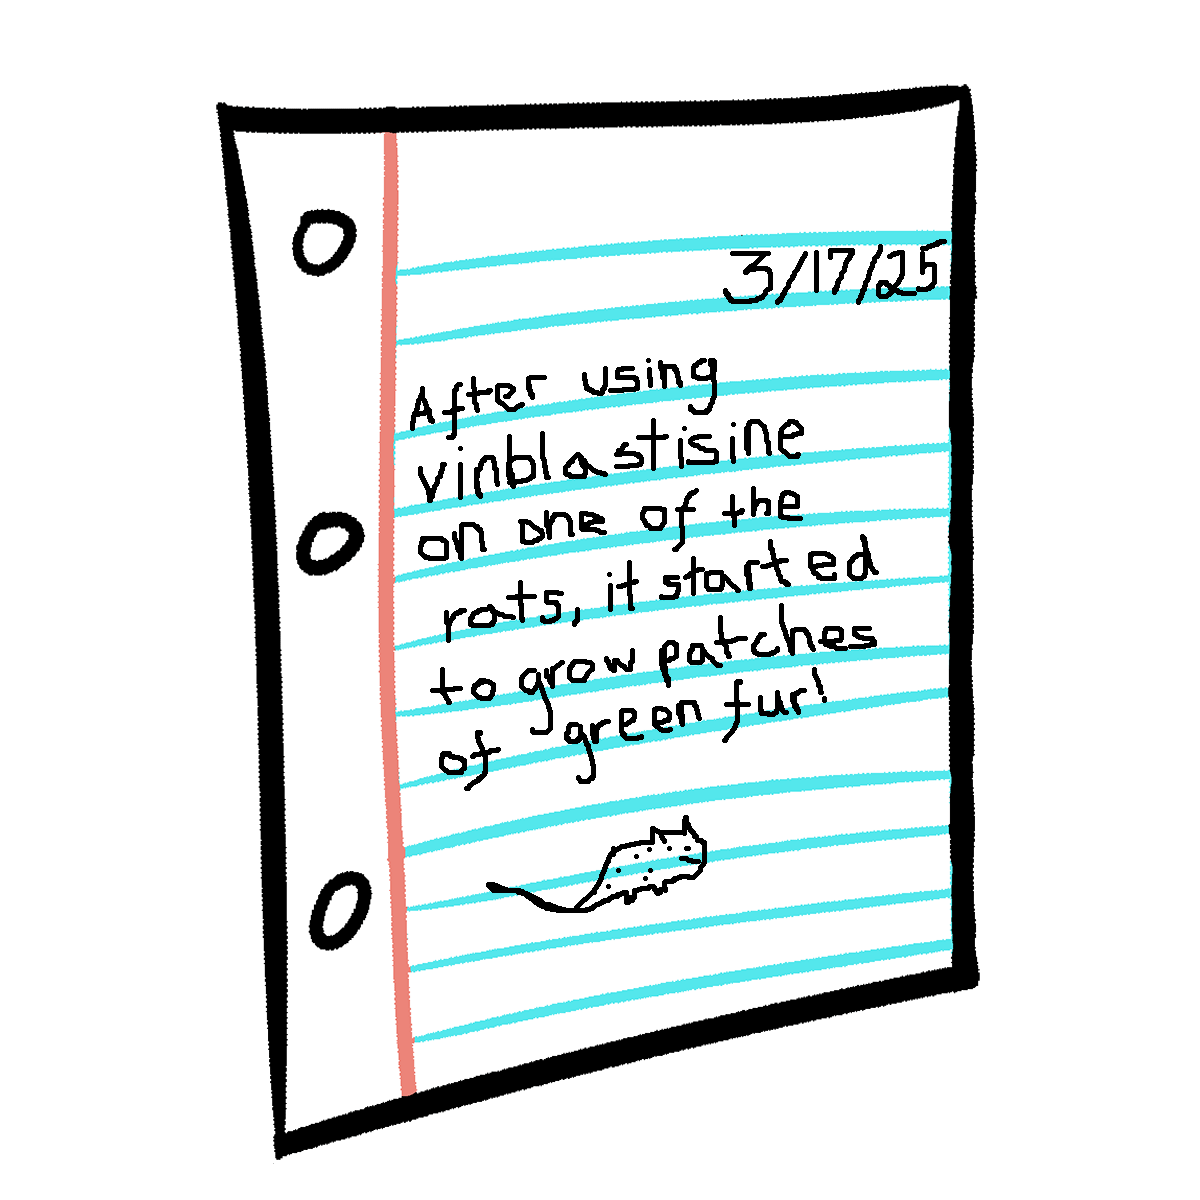 3/17/25
After using
vinblastisine
on one of the
rats, it started
to grow patches
of green fur!